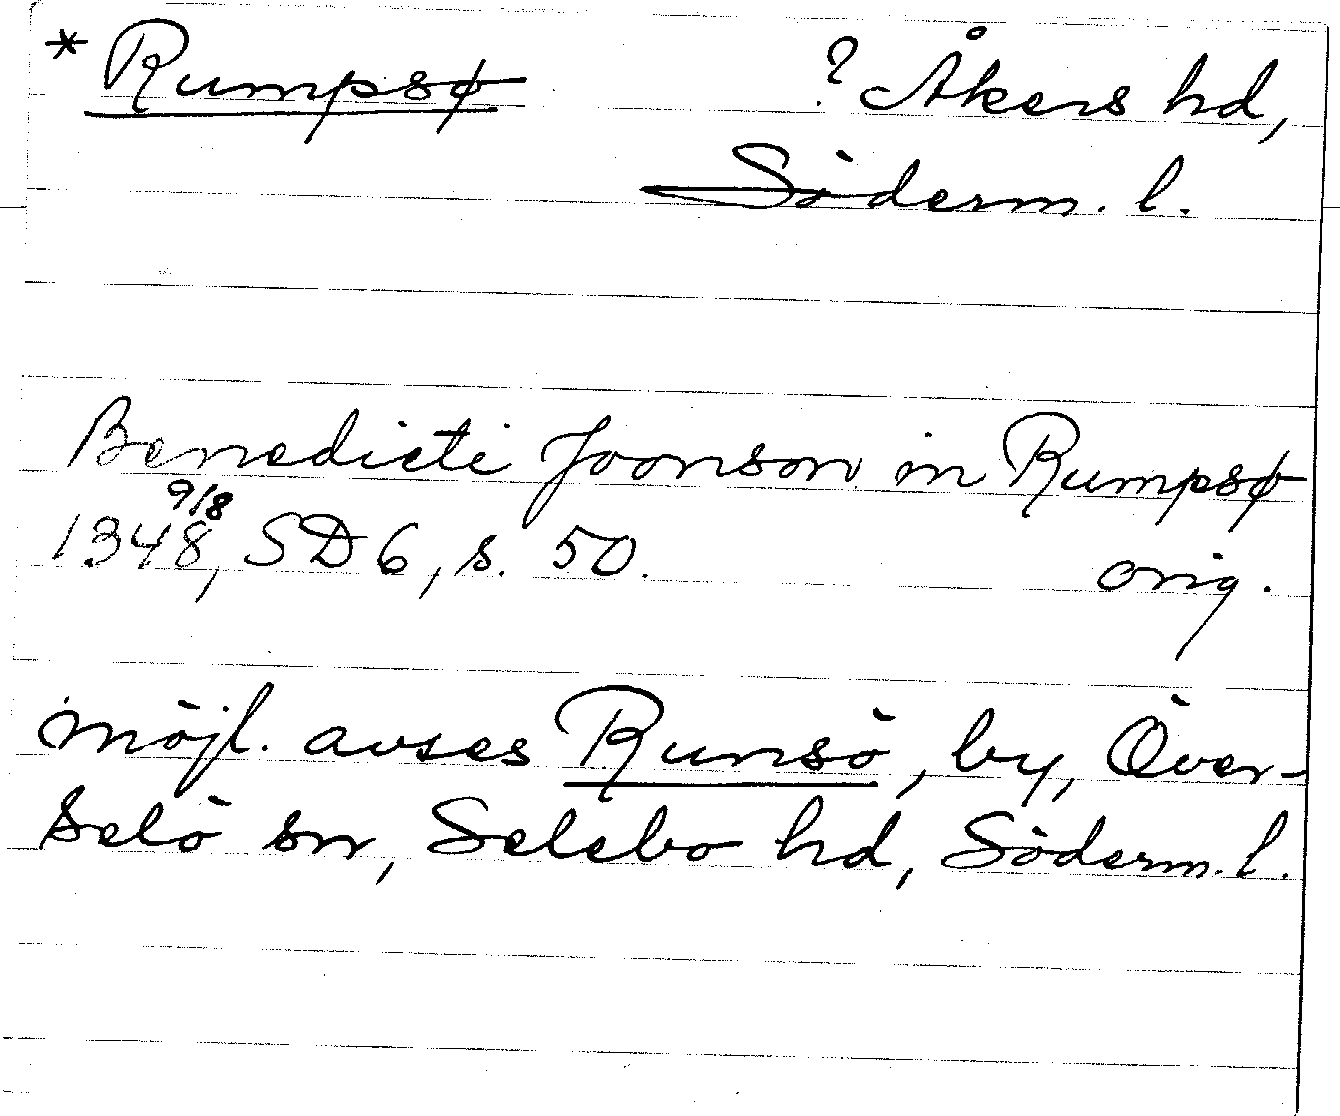 * Rumpsø ? Åkers hd,
Söderm. l.
Benedicti Joonson in Rumpsø
1348 9/8, SD 6, s. 50. orig.
möjl. avses Runsö, by, Över-
selö sn, Selebo hd, Söderm. l.